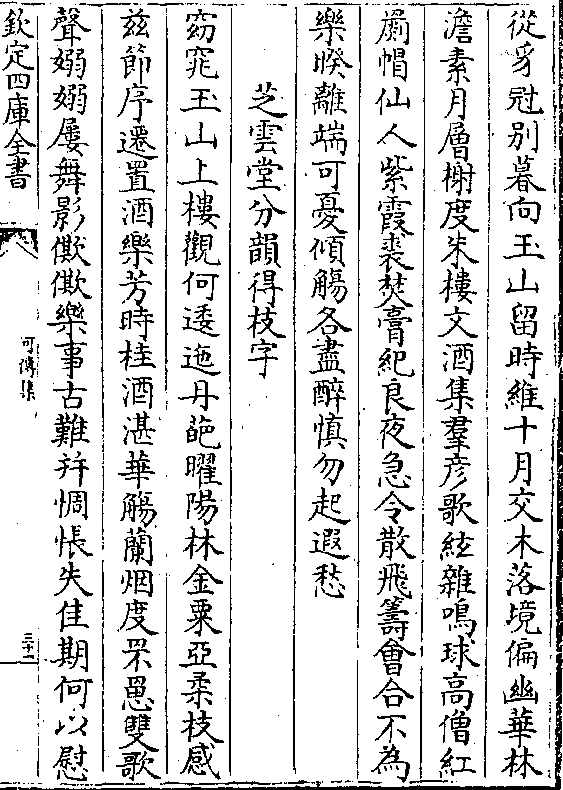 從豸冠别暮向玉山留時維十月交木落境偏幽華林
澹素月層榭度朱樓文酒集羣彦歌絃雜鳴球高僧紅
罽帽仙人紫霞裘焚膏紀良夜急令散飛籌會合不為
樂暌離端可憂傾觴各盡醉慎勿起遐愁
芝雲堂分韻得枝字
窈窕玉山上樓觀何逶迤丹葩曜陽林金粟亞柔枝感
兹節序遷置酒樂芳時桂酒湛華觴蘭烟度罘罳雙歌
聲嫋嫋屢舞影僛僛樂事古難并惆悵失佳期何以慰
欽定四庫全書
可傳集
三十一